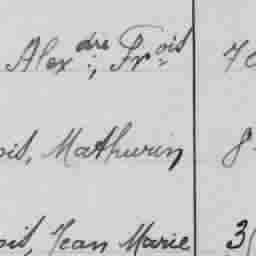 Alex dre, Fr ois 7
ois, Mathurin 8
ois, Jean Marie 3